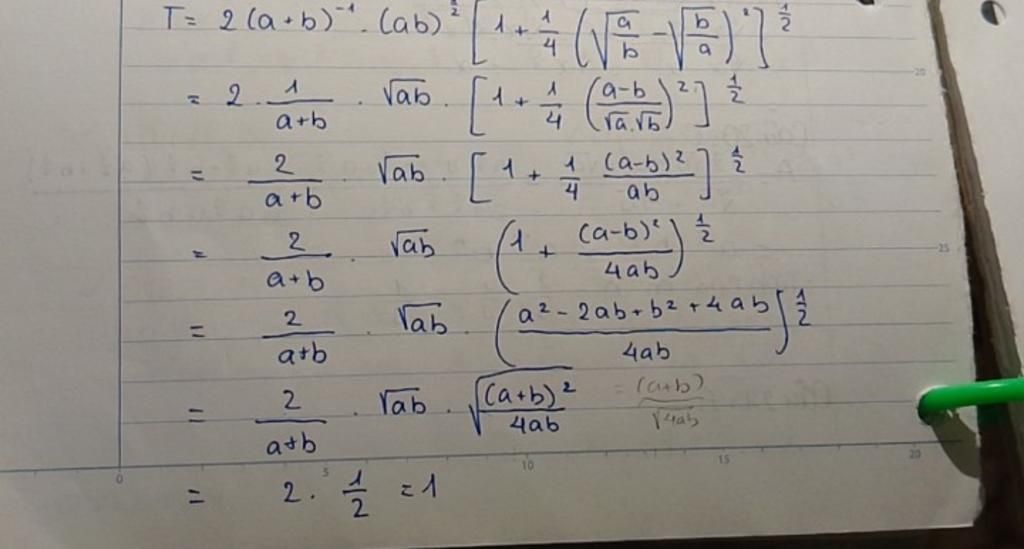 T = 2(a+b)⁻¹ · (ab)^½ [1 + 1/4 (√(a/b) − √(b/a))²]^½
= 2 · 1/(a+b) · √ab · [1 + 1/4 ((a-b)/(√a.√b))²]^½
= 2/(a+b) · √ab · [1 + 1/4 (a-b)²/ab]^½
= 2/(a+b) · √ab (1 + (a-b)²/4ab)^½
= 2/(a+b) · √ab · ((a² - 2ab + b² + 4ab)/4ab]^½
= 2/(a+b) · √ab · √((a+b)²/4ab) = (a+b)/√4ab
= 2 · 1/2 = 1
0 5 10 15 20
20
25